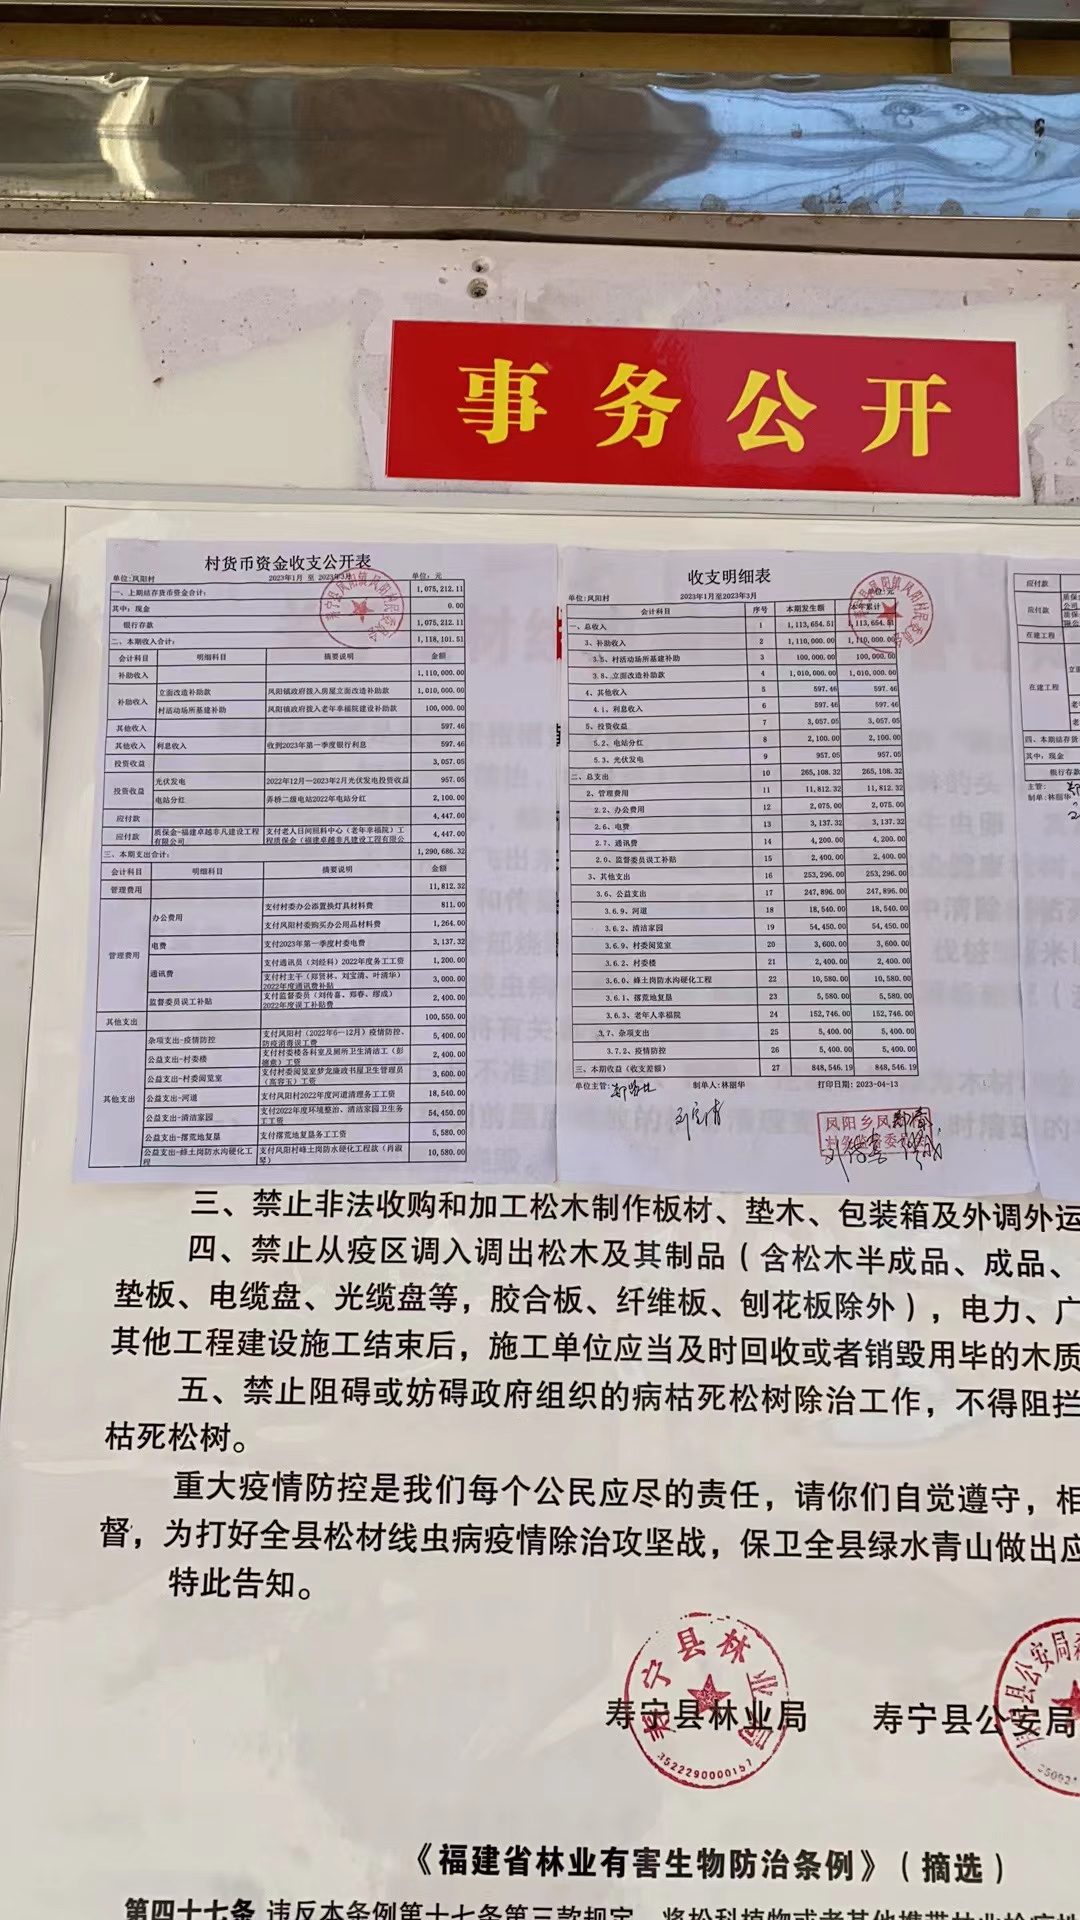 事务公开
村货币资金收支公开表
单位:凤阳村 2023年1月 至 2023年3月 单位：元
一、上期结存货币资金合计: 1,075,212.11
其中:现金 0.00
银行存款 1,075,212.11
二、本期收入合计: 1,118,101.51
会计科目 明细科目 摘要说明 金额
补助收入 1,110,000.00
补助收入 立面改造补助款 凤阳镇政府拨入房屋立面改造补助款 1,010,000.00
村活动场所基建补助 凤阳镇政府拨入老年幸福院建设补助款 100,000.00
其他收入 597.46
其他收入 利息收入 收到2023年第一季度银行利息 597.46
投资收益 3,057.05
投资收益 光伏发电 2022年12月—2023年2月光伏发电投资收益 957.05
电站分红 弄桥二级电站2022年电站分红 2,100.00
应付款 4,447.00
应付款 质保金-福建卓越非凡建设工程有限公司 支付老人日间照料中心（老年幸福院）工程质保金（福建卓越非凡建设工程有限公 4,447.00
三、本期支出合计: 1,290,686.32
会计科目 明细科目 摘要说明 金额
管理费用 11,812.32
管理费用 办公费用 支付村委办公添置换灯具材料费 811.00
支付凤阳村委购买办公用品材料费 1,264.00
电费 支付2023年第一季度村委电费 3,137.32
通讯费 支付通讯员（刘经科）2022年度务工工资 1,200.00
支付村主干（郑贤林、刘宝清、叶清华）2022年度通讯费补贴 3,000.00
监督委员误工补贴 支付监督委员（刘传喜、郑春、缪成）2022年度误工补贴费 2,400.00
其他支出 100,550.00
其他支出 杂项支出-疫情防控 支付凤阳村（2022年6—12月）疫情防控、防疫消毒误工费 5,400.00
公益支出-村委楼 支付村委楼各科室及厕所卫生清洁工（彭 工资 2,400.00
公益支出-村委阅览室 支付村委阅览室梦龙廉政书屋卫生管理员 工资 3,600.00
公益支出-河道 支付凤阳村2022年度河道清理务工工资 18,540.00
公益支出-清洁家园 支付2022年度环境整治、清洁家园卫生务工工资 54,450.00
公益支出-撂荒地复垦 支付撂荒地复垦务工工资 5,580.00
公益支出-蜂土岗防水沟硬化工程 支付凤阳村蜂土岗防水沟硬化工程款（肖 琴） 10,580.00
收支明细表
单位:凤阳村 2023年1月至2023年3月 元
会计科目 序号 本期发生额 本年累计
一、总收入 1 1,113,654.51 1,113,654.51
3、补助收入 2 1,110,000.00 1,110,000.00
3.5、村活动场所基建补助 3 100,000.00 100,000.00
3.8、立面改造补助款 4 1,010,000.00 1,010,000.00
4、其他收入 5 597.46 597.46
4.1、利息收入 6 597.46 597.46
5、投资收益 7 3,057.05 3,057.05
5.2、电站分红 8 2,100.00 2,100.00
5.3、光伏发电 9 957.05 957.05
二、总支出 10 265,108.32 265,108.32
2、管理费用 11 11,812.32 11,812.32
2.2、办公费用 12 2,075.00 2,075.00
2.6、电费 13 3,137.32 3,137.32
2.7、通讯费 14 4,200.00 4,200.00
2.0、监督委员误工补贴 15 2,400.00 2,400.00
3、其他支出 16 253,296.00 253,296.00
3.6、公益支出 17 247,896.00 247,896.00
3.6.9、河道 18 18,540.00 18,540.00
3.6.2、清洁家园 19 54,450.00 54,450.00
3.6.9、村委阅览室 20 3,600.00 3,600.00
3.6.2、村委楼 21 2,400.00 2,400.00
3.6.0、蜂土岗防水沟硬化工程 22 10,580.00 10,580.00
3.6.1、撂荒地复垦 23 5,580.00 5,580.00
3.6.3、老年人幸福院 24 152,746.00 152,746.00
3.7、杂项支出 25 5,400.00 5,400.00
3.7.2、疫情防控 26 5,400.00 5,400.00
三、本期收益（收支差额） 27 848,546.19 848,546.19
单位主管: 制单人:林丽华 打印日期:2023-04-13
应付款
应付款
在建工程
在建工程
四、本期结存货
其中:现金
银行存款
主管:
制单:林丽华
三、禁止非法收购和加工松木制作板材、垫木、包装箱及外调外运
四、禁止从疫区调入调出松木及其制品（含松木半成品、成品、
垫板、电缆盘、光缆盘等，胶合板、纤维板、刨花板除外），电力、广
其他工程建设施工结束后，施工单位应当及时回收或者销毁用毕的木质
五、禁止阻碍或妨碍政府组织的病枯死松树除治工作，不得阻拦
枯死松树。
重大疫情防控是我们每个公民应尽的责任，请你们自觉遵守，相
督，为打好全县松材线虫病疫情除治攻坚战，保卫全县绿水青山做出应
特此告知。
寿宁县林业局 寿宁县公安局
3522290000157
《福建省林业有害生物防治条例》（摘选）
第四十七条 违反本条例第十七条第三款规定，将松科植物或者其他携带林业检疫性